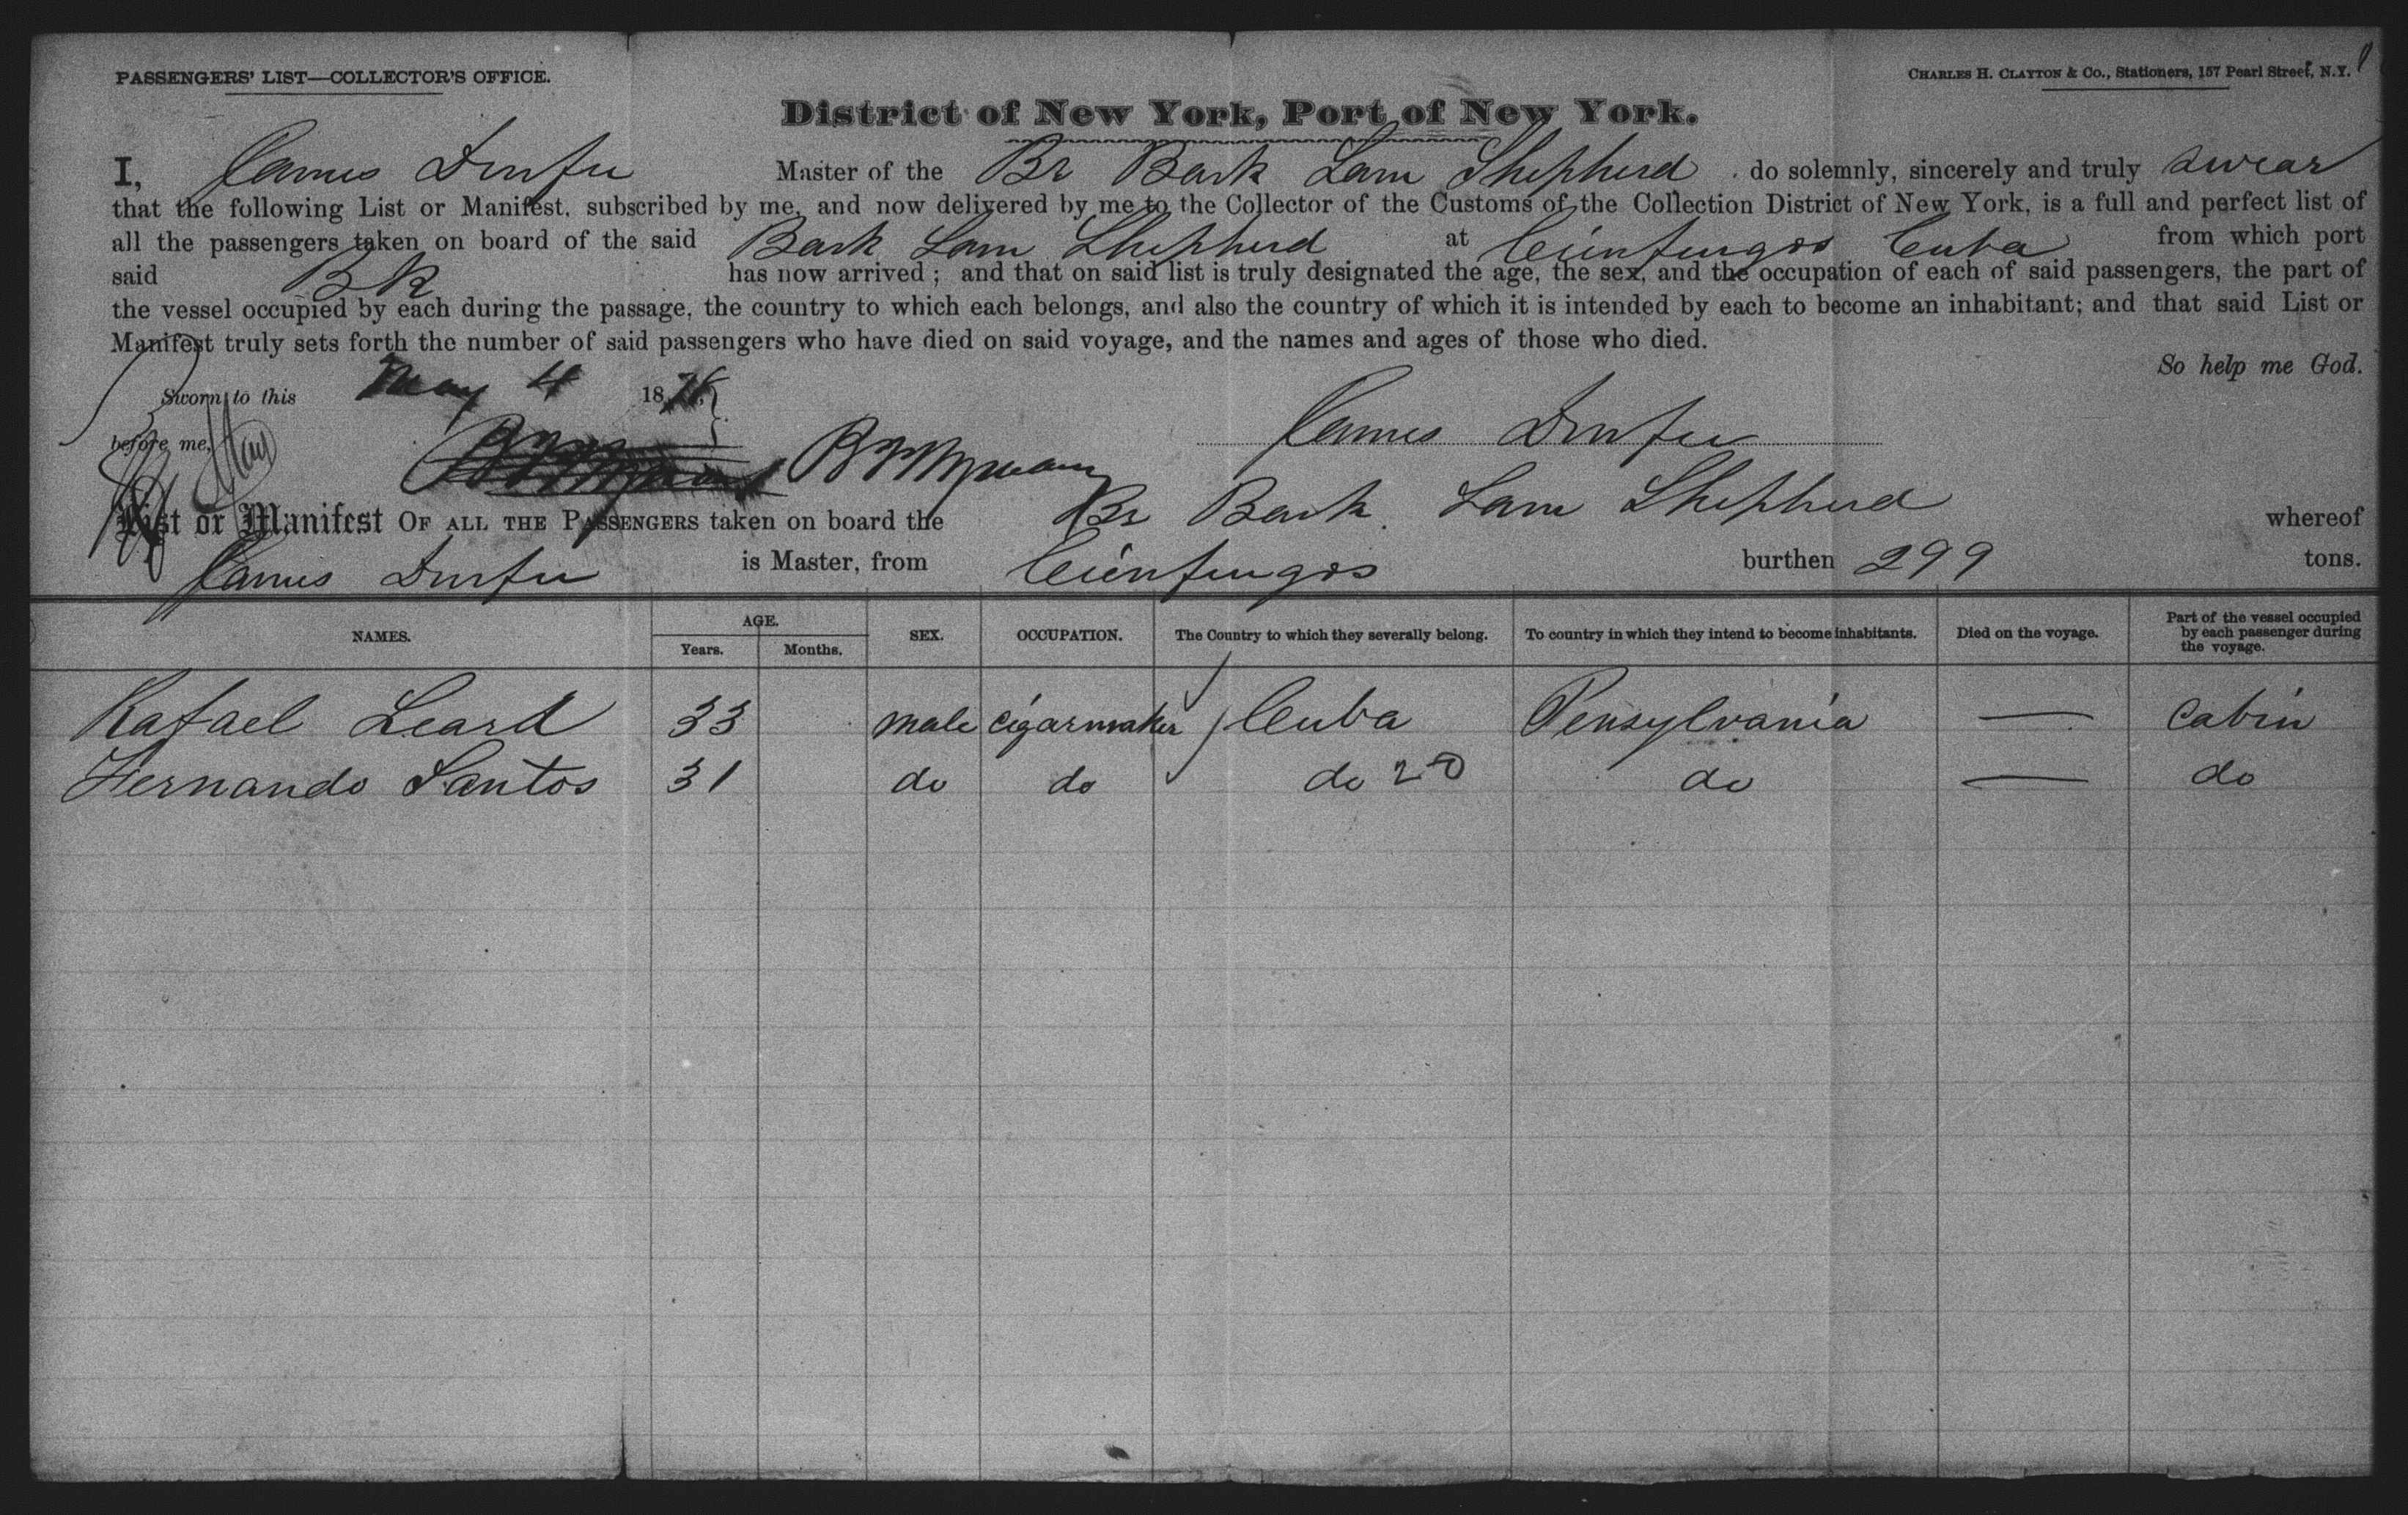 PASSENGERS' LIST—COLLECTOR'S OFFICE.
CHARLES H. CLAYTON & Co., Stationers, 157 Pearl Street, N.Y.
District of New York, Port of New York.
I, James Durfee Master of the Br Bark Sam Shepherd do solemnly, sincerely and truly swear
that the following List or Manifest, subscribed by me, and now delivered by me to the Collector of the Customs of the Collection District of New York, is a full and perfect list of
all the passengers taken on board of the said Bark Sam Shepherd at Cienfuegos Cuba from which port
said Bk has now arrived; and that on said list is truly designated the age, the sex, and the occupation of each of said passengers, the part of
the vessel occupied by each during the passage, the country to which each belongs, and also the country of which it is intended by each to become an inhabitant; and that said List or
Manifest truly sets forth the number of said passengers who have died on said voyage, and the names and ages of those who died.
So help me God.
Sworn to this May 4 18
before me,
James Durfee
List or Manifest OF ALL THE PASSENGERS taken on board the Br Bark Sam Shepherd whereof
James Durfee is Master, from Cienfuegos burthen 299 tons.
NAMES. AGE. Years. Months. SEX. OCCUPATION. The Country to which they severally belong. To country in which they intend to become inhabitants. Died on the voyage. Part of the vessel occupied by each passenger during the voyage.
Rafael Leard 33 male cigarmaker Cuba Pensylvania — cabin
Fernando Santos 31 do do do 20 do — do